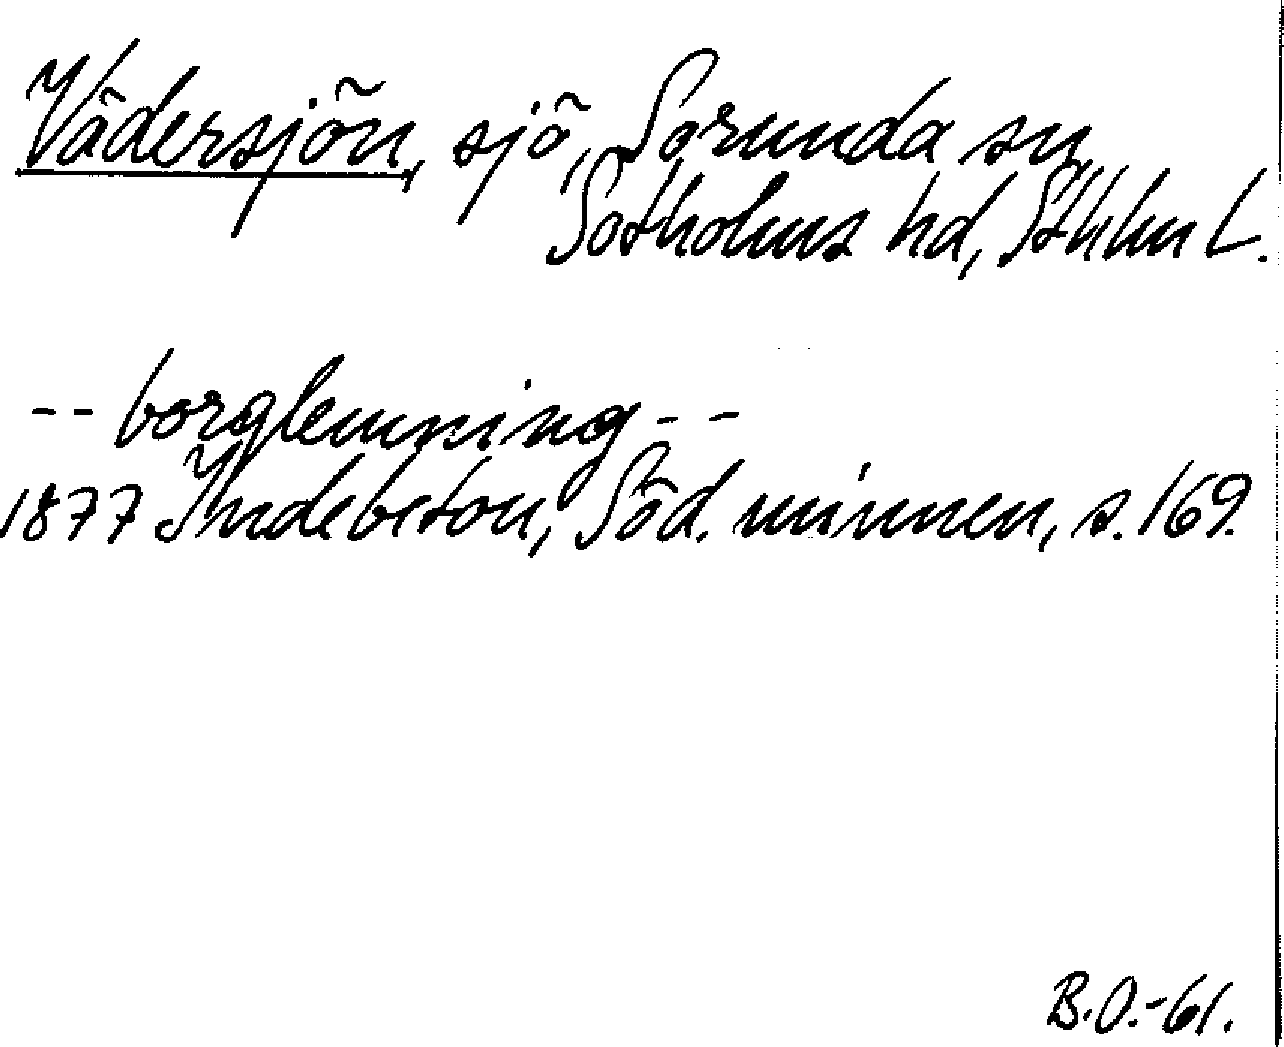 Vädersjön, sjö, Sorunda sn,
Sotholms hd, Sthlm L.
-- borglemning --
1877 Indebetou, Söd. minnen, s. 169.
B.O.-61.